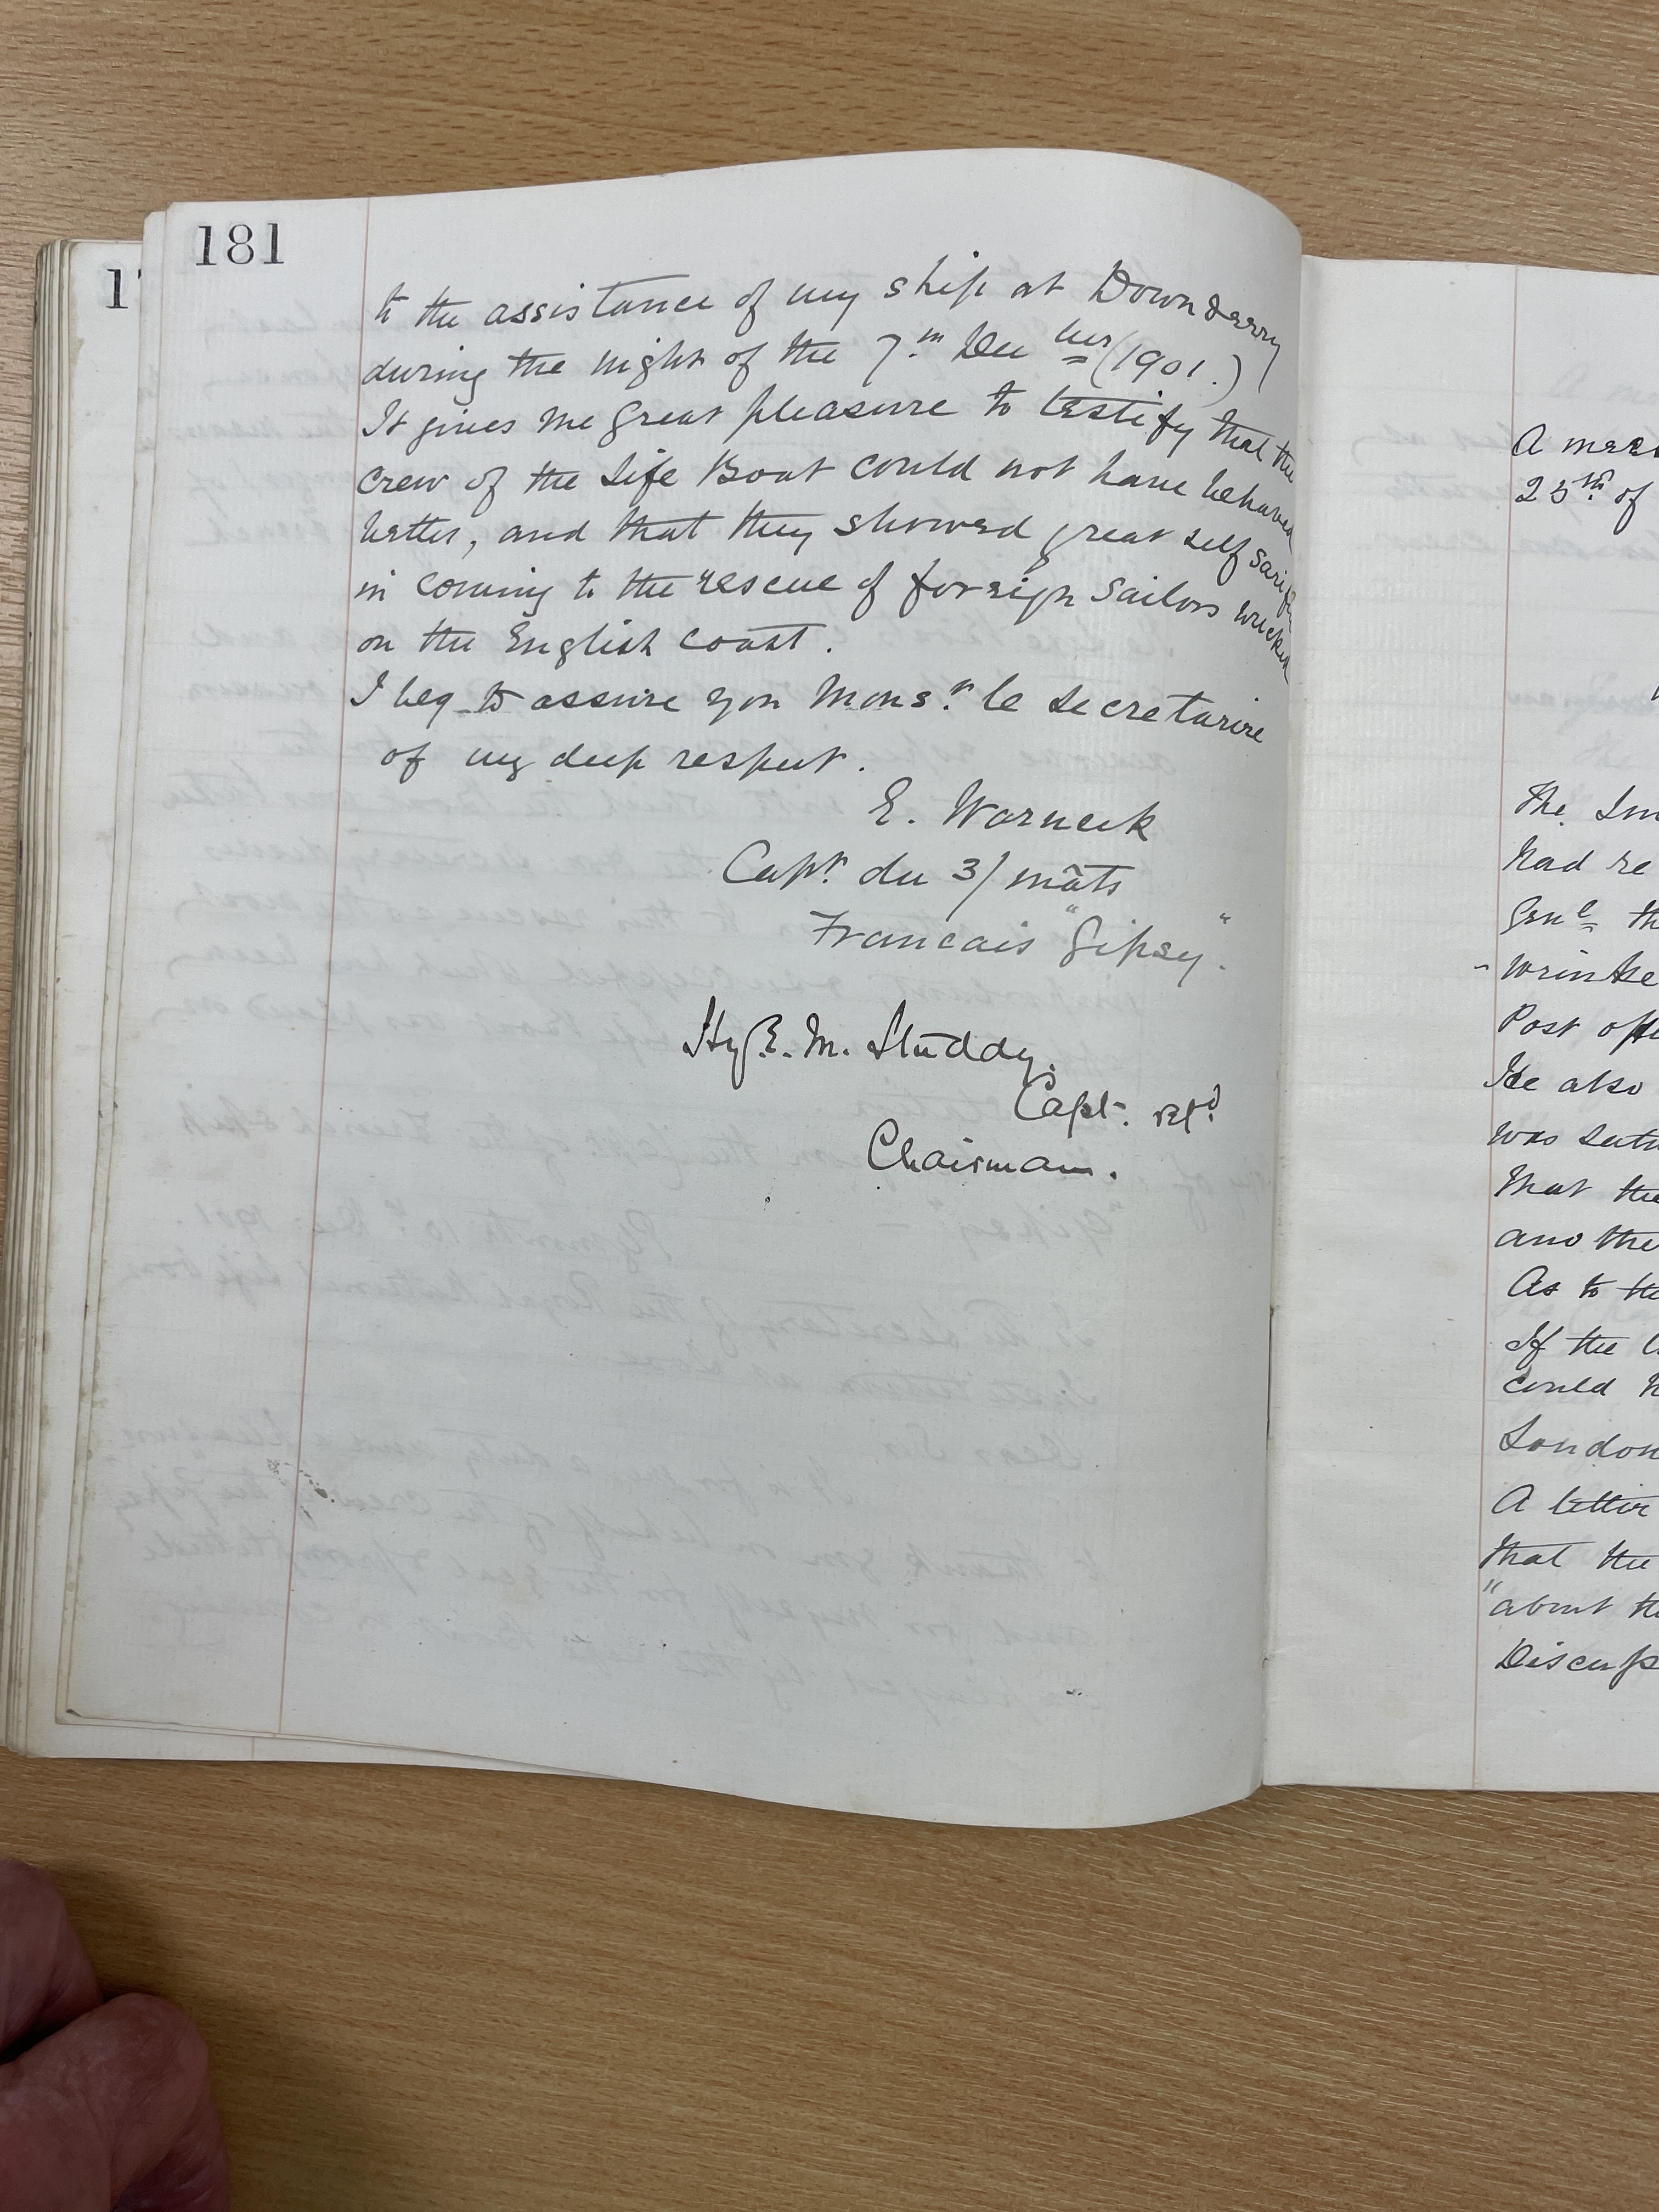 181
1
to the assistance of my ship at Downderry
during the night of the 7th Decber (1901.)
It gives me great pleasure to testify that the
crew of the Life Boat could not have behaved
better, and that they showed great self sarifice
in coming to the rescue of foreign Sailors wrecked
on the English coast.
I beg to assure you Monsr. le Secretaire
of my deep respect.
E. Warneck
Capt. du 3/ mâts
Francais "Gipsy".
Hy E. M. Studdy.
Capt. Rtd.
Chairman.
A mee
25th of
The
had re
Genl th
Post off
He also
was
That the
and the
As to the
If the
could
London
A letter
that the
"about th